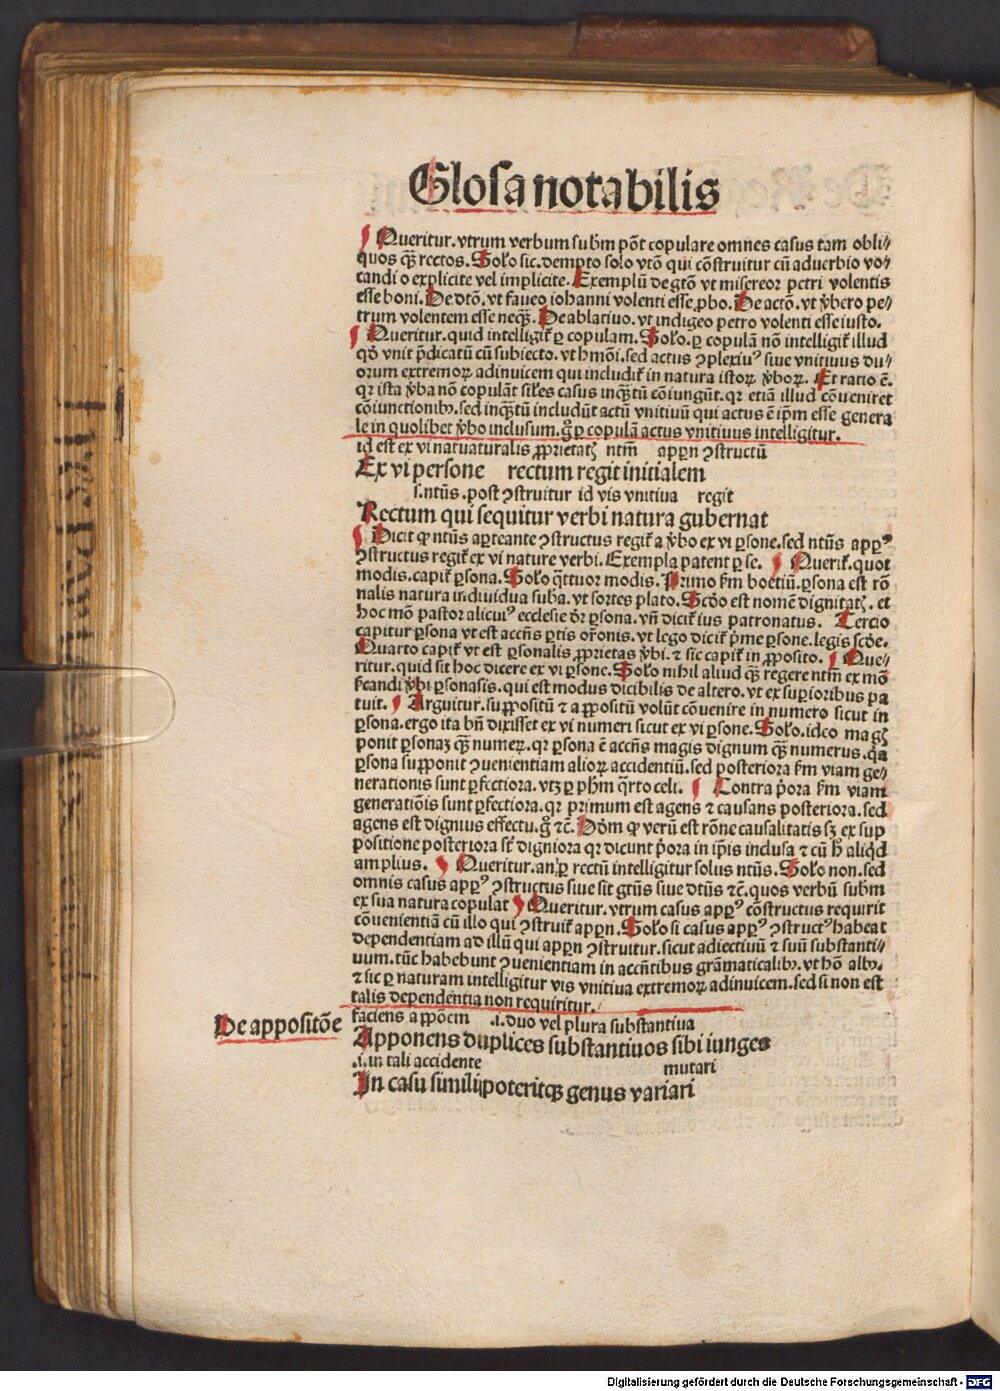 Glosa notabilis
Queritur. vtrum verbum subm põt copulare omnes casus tam obli⸗
quos qꝫ rectos. Solo sic. dempto solo vtõ qui cõstruitur cũ aduerbio vo⸗
candi o explicite vel implicite. Exemplũ de gtõ vt misereor petri volentis
esse boni. De dtõ. vt faueo iohanni volenti esse ꝓbo. De actõ. vt v̾bero pe⸗
trum volentem esse neqꝫ. De ablatiuo. vt indigeo petro volenti esse iusto.
Queritur. quid intelligit̃ ꝑ copulam. Solo. ꝑ copulã nõ intelligit̃ illud
qd̓ vnit p̃dicatũ cũ subiecto. vt hmõi. sed actus ꝯplexiuꝰ siue vnitiuus du⸗
orum extremoꝝ adinuicem qui includit̃ in natura istoꝝ v̾boꝝ. Et ratio ẽ.
qꝛ ista v̾ba nõ copulãt sil̃es casus inqꝫtũ cõiungũt. qꝛ etiã illud cõueniret
cõiunctionibꝰ. sed inqꝫtũ includũt actũ vnitiuũ qui actus ẽ ip̃m esse genera
le in quolibet v̾bo inclusum. g̊ ꝑ copulã actus vnitiuus intelligitur.
id est ex vi natuaturalis ꝓprietatꝭ ntm̃ appꝛn ꝯstructũ
Ex vi persone rectum regit initialem
s. ntũs. post ꝯstruitur id vis vnitiua regit
Rectum qui sequitur verbi natura gubernat
Dicit ꝙ ntũs aꝑteante ꝯstructus regit̃ a v̾bo ex vi ꝑsone. sed ntũs appꝛꝰ
ꝯstructus regit̃ ex vi nature verbi. Exempla patent ꝑ se. Querit̃. quot
modis. capit̃ ꝑsona. Solo q̃ttuor modis. Primo s̃m boetiũ. ꝑsona est rõ
nalis natura indiuidua suba. vt sortes plato. Scd̓o est nomẽ dignitatꝭ. et
hoc mõ pastor alicuiꝰ ecclesie dr̃ ꝑsona. vñ dicit̃ ius patronatus. Tercio
capitur ꝑsona vt est accñs ꝑtis or̃onis. vt lego dicit̃ p̃me ꝑsone. legis scd̓e.
Quarto capit̃ vt est ꝑsonalis ꝓprietas v̾bi. ⁊ sic capit̃ in ꝓposito. Que⸗
ritur. quid sit hoc dicere ex vi ꝑsone. Solo nihil aliud qꝫ regere ntm̃ ex mõ
s̃candi v̾bi ꝑsonasis. qui est modus dicibilis de altero. vt ex suꝑioribus pa
tuit. Arguitur. suꝓpositũ ⁊ aꝓpositũ volũt cõuenire in numero sicut in
ꝑsona. ergo ita bñ dixisset ex vi numeri sicut ex vi ꝑsone. Solo. ideo magꝭ
ponit ꝑsonaꝫ qꝫ numeꝝ. qꝛ ꝑsona ẽ accñs magis dignum qꝫ numerus. q̃a
ꝑsona suꝓponit ꝯuenientiam alioꝝ accidentiũ. sed posteriora s̃m viam ge⸗
nerationis sunt ꝑfectiora. vtꝫ ꝑ ph̃m q̃rto celi. Contra p̃ora s̃m viam
generatiõis sunt ꝑfectiora. qꝛ primum est agens ⁊ causans posteriora. sed
agens est dignius effectu. g̊ ⁊c̃. Dõm ꝙ verũ est rõne causalitatis sꝫ ex sup
positione posteriora st̃ digniora qꝛ dicunt p̃ora in ip̃is inclusa ⁊ cũ h̃ aliq̃d
amplius. Queritur. an ꝑ rectũ intelligitur solus ntũs. Solo non. sed
omnis casus appꝛꝰ ꝯstructus siue sit gtũs siue dtũs ⁊c̃. quos verbũ subm
ex sua natura copulat Queritur. vtrum casus appꝛꝰ cõstructus requirit
cõuenientiã cũ illo qui ꝯstruit̃ appꝛn. Solo si casus appꝛꝰ ꝯstructꝰ habeat
dependentiam ad illũ qui appꝛn ꝯstruitur. sicut adiectiuũ ⁊ suũ substanti⸗
uum. tũc habebunt ꝯuenientiam in accñtibus grãmaticalibꝰ. vt hõ albꝰ.
⁊ sic ꝑ naturam intelligitur vis vnitiua extremoꝝ adinuicem. sed si non est
talis dependentia non requiritur.
faciens aꝓpõcm .i. duo vel plura substantiua
De appositõe
Apponens duplices substantiuos sibi iunges
.i. in tali accidente mutari
In casu simili poteritqꝫ genus variari
Digitalisierung gefördert durch die Deutsche Forschungsgemeinschaft - DFG